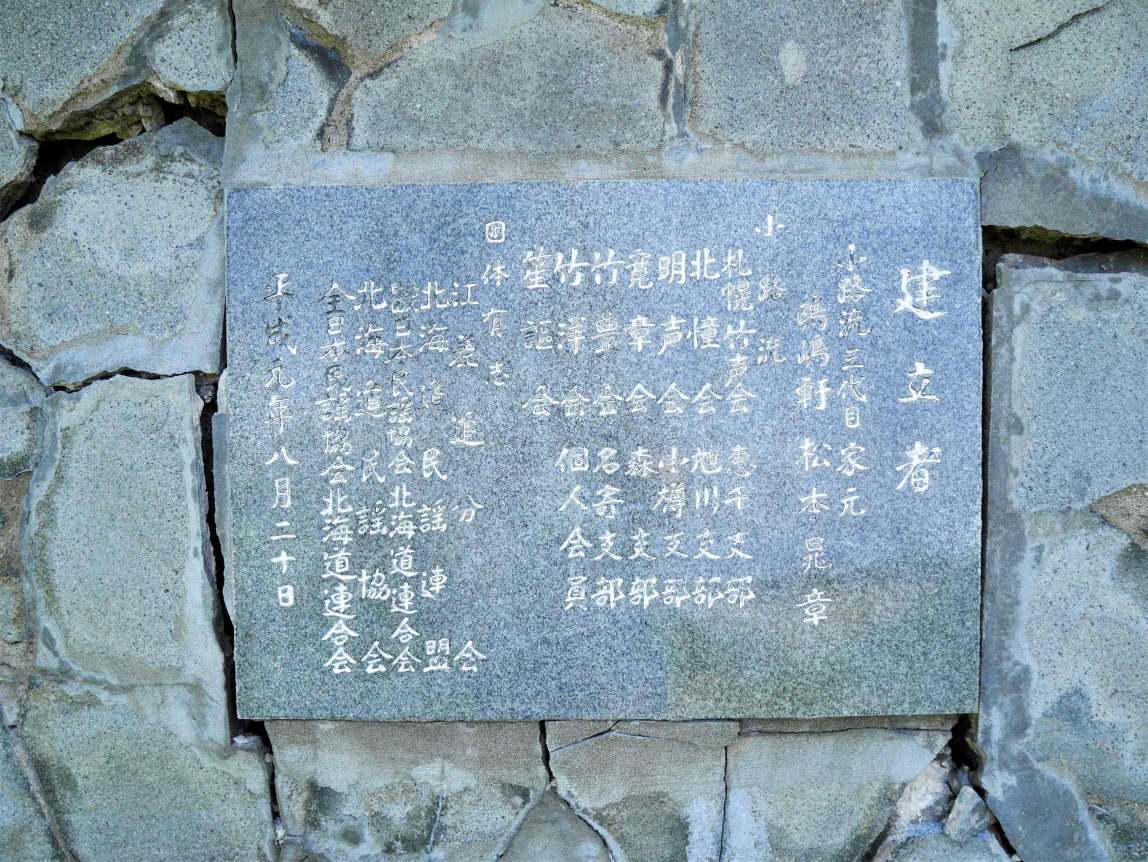 建立者
小路流三代目家元
鴎嶋軒 松本晁章
小路流
札幌竹声会 恵千支部
北憧会 旭川支部
明声会 小樽支部
寛章会 森支部
竹豊会 名寄支部
竹洋会 個人会員
笙謳会
団体有志
江差追分会
北海道民謡連盟
日本民謡協会北海道連合会
北海道民謡協会
全日本民謡協会北海道連合会
平成元年八月二十日